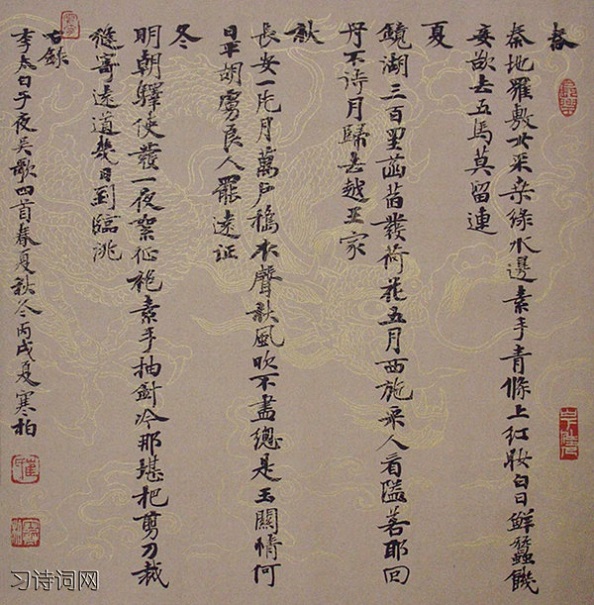 春
秦地羅敷女采桑綠水邊素手青條上红妝白日鮮蠶饑
妾欲去五馬莫留連
夏
鏡湖三百里菡萏發荷花五月西施采人看隘若耶回
舟不待月歸去越王家
秋
長安一片月萬户搗衣聲秋風吹不盡總是玉關情何
日平胡虜良人罷遠征
冬
明朝驛使發一夜絮征袍素手抽針冷那堪把剪刀裁
縫寄遠道幾日到臨洮
右錄
李太白子夜吴歌四首春夏秋冬丙戌夏寒柏
习诗词网